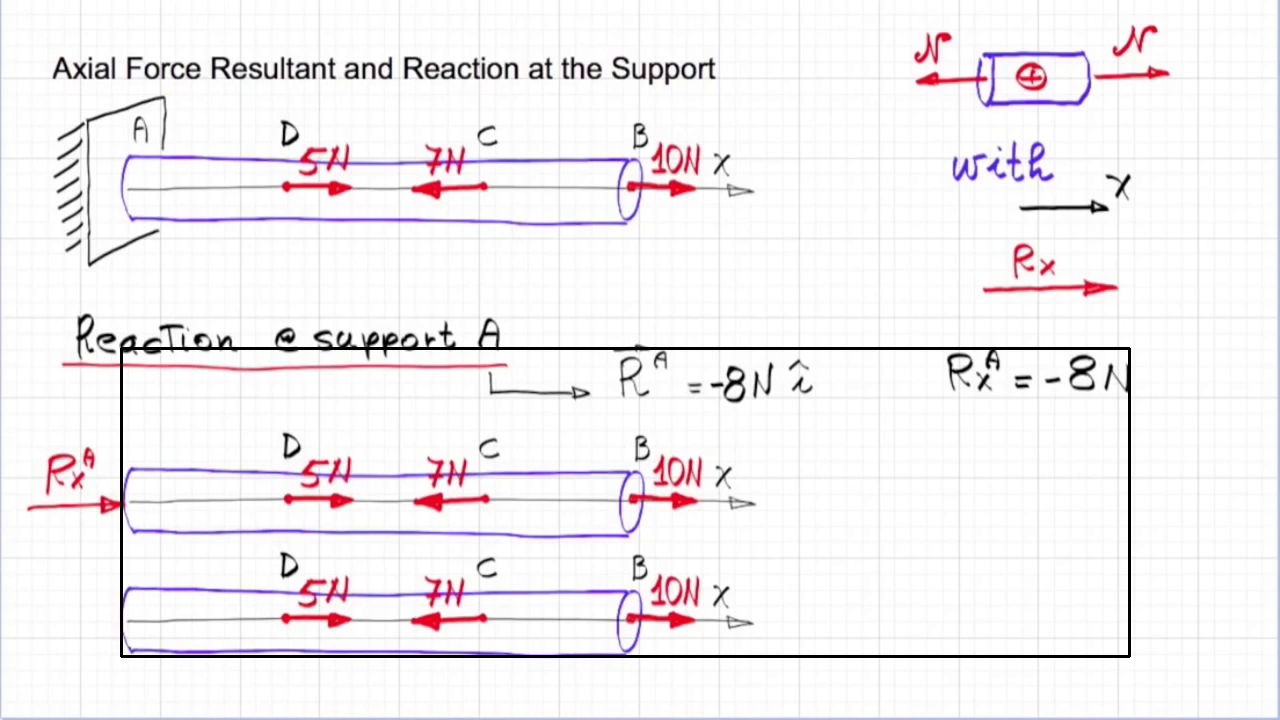 Axial Force Resultant and Reaction at the Support
N N
A D 5N 7N C B 10N x
with
x
Rx
Reaction @ support A
R^A = -8N î Rx^A = -8N
Rx^A D 5N 7N C B 10N x
D 5N 7N C B 10N x